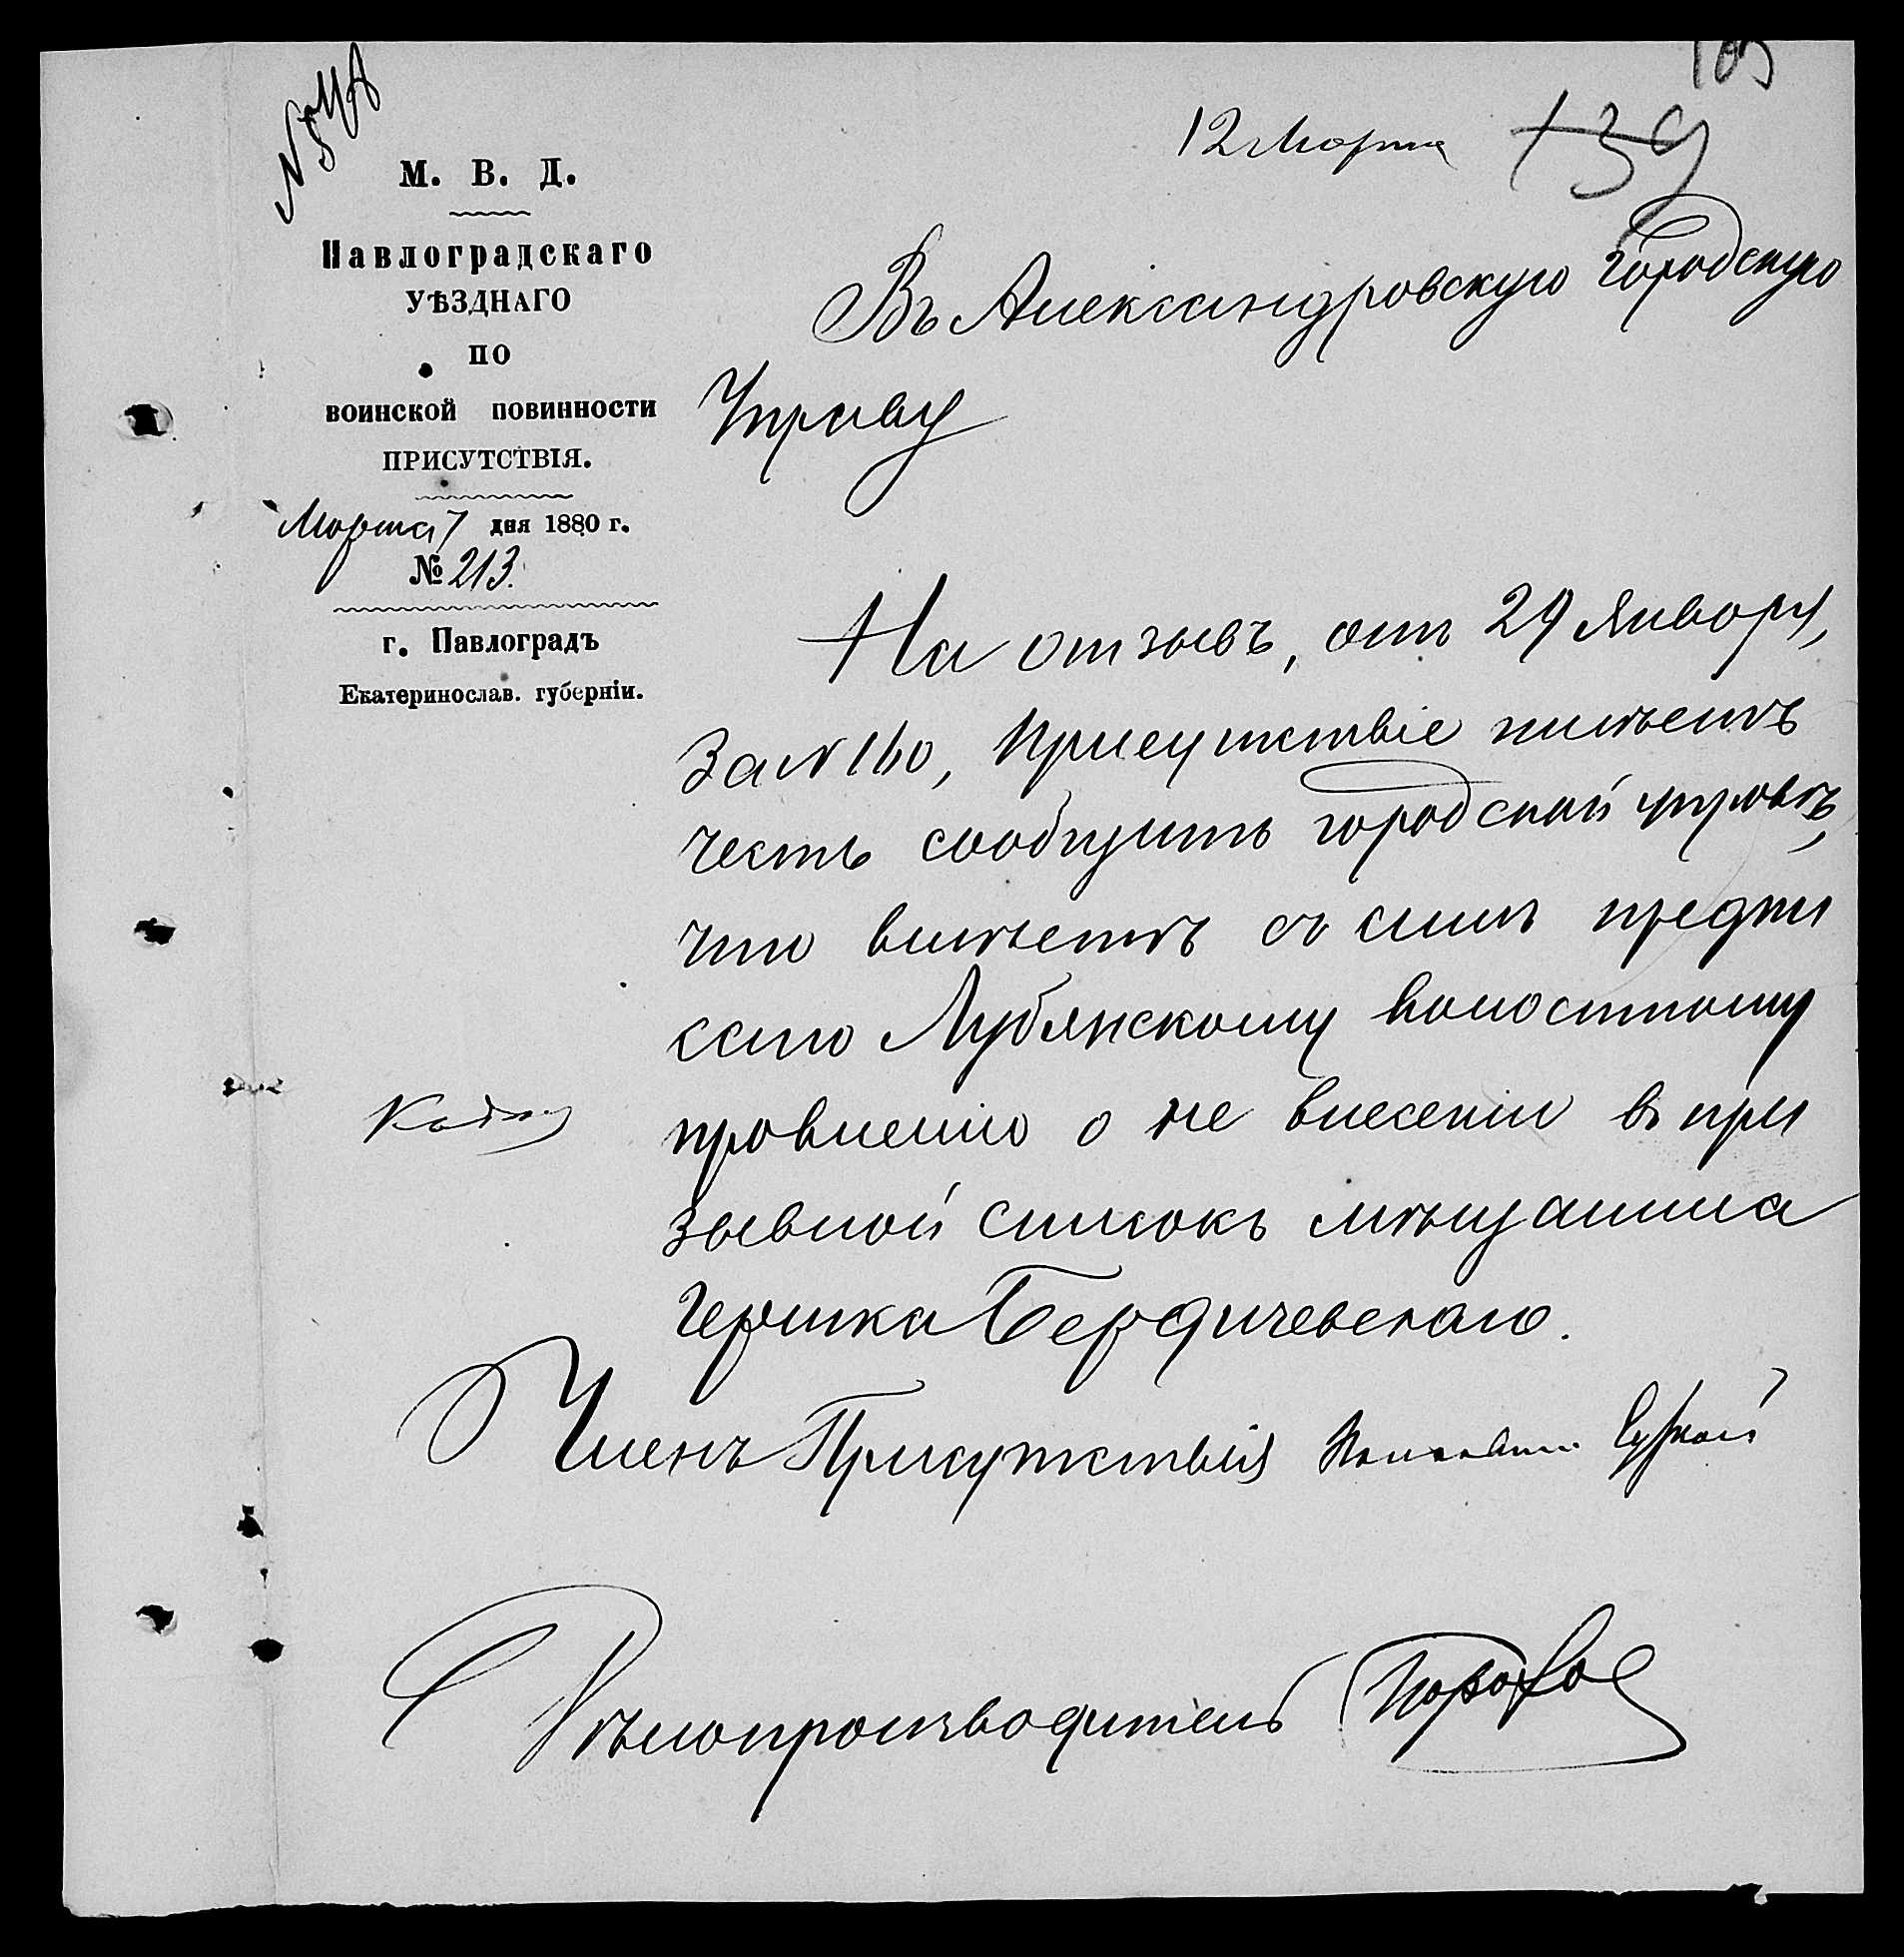 12 Марта
139
М. В. Д.
Павлоградскаго
УѢЗДНАГО
ПО
воинской повинности
ПРИСУТСТВІЯ.
Марта 7 дня 1880 г.
№ 213.
г. Павлоградъ
Екатеринослав. губерніи.
Въ Александровскую Городскую
Управу
На отзывъ, отъ 29 Января,
за N 160, Присутствіе имѣетъ
честь сообщить городской управѣ,
что вмѣстѣ съ симъ предпи
сано Лубянскому волостному
правленію о не внесеніи въ при
зывной списокъ мѣщанина
Гершка Бердичевскаго.
Членъ Присутствія
Дѣлопроизводитель